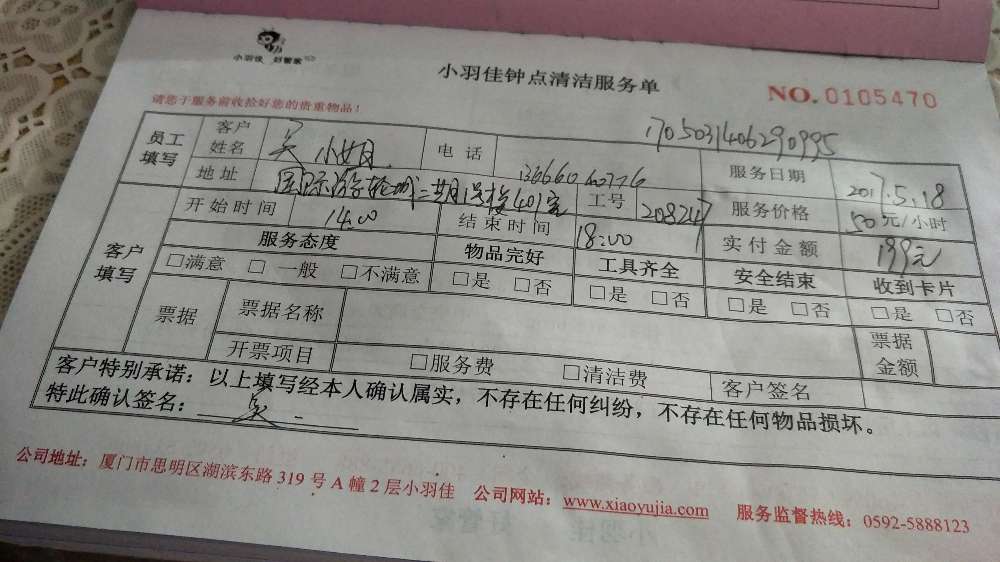 小羽佳 好管家
小羽佳钟点清洁服务单
NO.0105470
请您于服务前收拾好您的贵重物品！
1705031406290995
员工填写 客户姓名 吴小姐 电话 13666060776 服务日期 2017.5.18
地址 国际游轮城二期1号楼401室 工号 208247 服务价格 50元/小时
客户填写 开始时间 14:00 结束时间 18:00 实付金额 199元
服务态度 物品完好 工具齐全 安全结束 收到卡片
□满意 □一般 □不满意 □是 □否 □是 □否 □是 □否 □是 □否
票据 票据名称 票据金额
开票项目 □服务费 □清洁费 客户签名
客户特别承诺：以上填写经本人确认属实，不存在任何纠纷，不存在任何物品损坏。
特此确认签名：吴
公司地址：厦门市思明区湖滨东路319号A幢2层小羽佳 公司网站：www.xiaoyujia.com 服务监督热线：0592-5888123